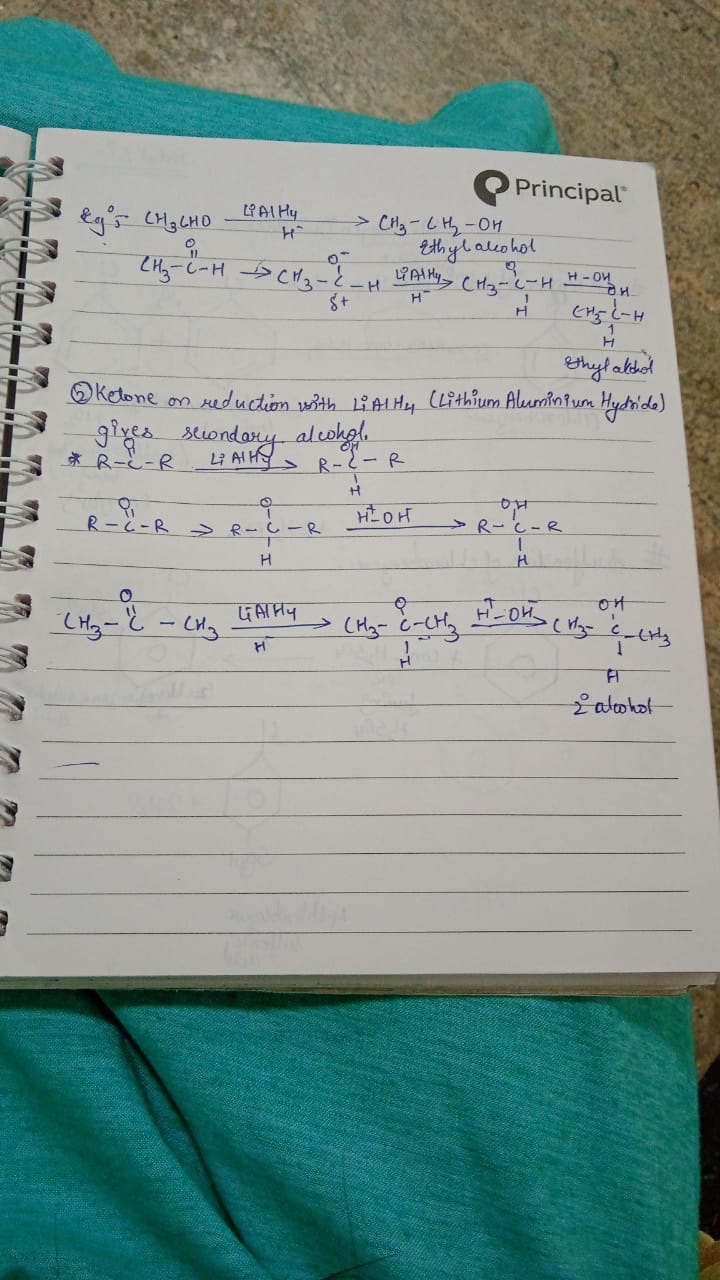 Principal
Eg:- CH3CHO LiAlH4 H⁻ → CH3-CH2-OH
Ethyl alcohol
CH3-C(=O)-H → CH3-C(O⁻)-H δ+ LiAlH4 H⁻ → CH3-C(O)(H)-H H-OH → CH3-C(OH)(H)-H
Ethyl alcohol
⑤ Ketone on reduction with LiAlH4 (Lithium Aluminium Hydride)
gives secondary alcohol.
* R-C(=O)-R LiAlH4 → R-C(OH)(H)-R
R-C(=O)-R → R-C(O)(H)-R H⁺-OH⁻ → R-C(OH)(H)-R
CH3-C(=O)-CH3 LiAlH4 H⁻ → CH3-C(O)(H)-CH3 H⁺-OH⁻ → CH3-C(OH)(H)-CH3
2° alcohol